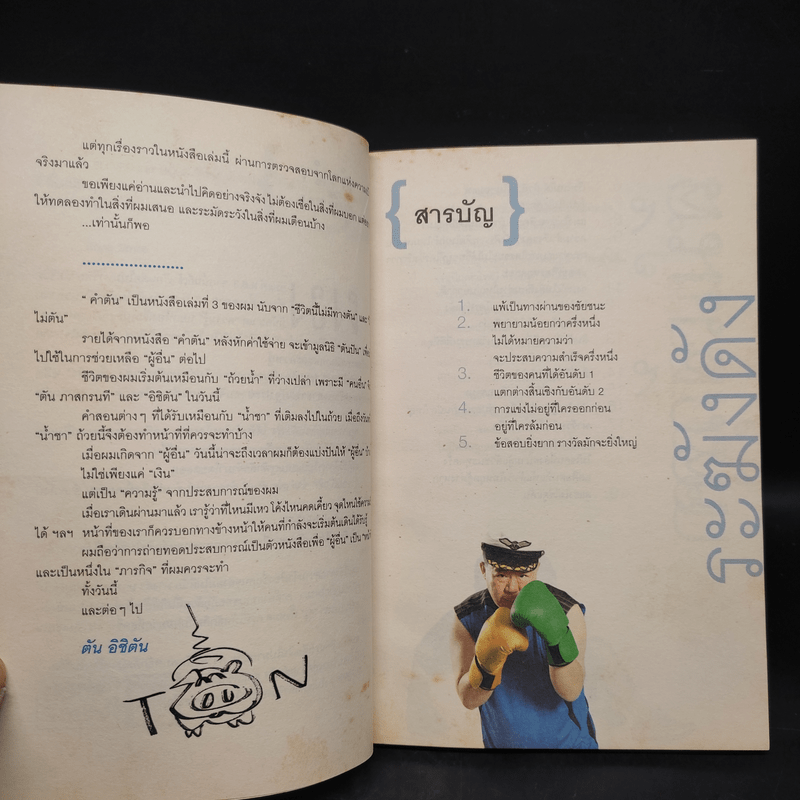 แต่ทุกเรื่องราวในหนังสือเล่มนี้ ผ่านการตรวจสอบจากโลกแห่งความ
จริงมาแล้ว
ขอเพียงแค่อ่านและนำไปคิดอย่างจริงจัง ไม่ต้องเชื่อในสิ่งที่ผมบอก
ให้ทดลองทำในสิ่งที่ผมเสนอ และระมัดระวังในสิ่งที่ผมเตือนบ้าง
...เท่านั้นก็พอ
“ คำตัน” เป็นหนังสือเล่มที่ 3 ของผม นับจาก “ชีวิตนี้ไม่มีทางตัน” และ
ไม่ตัน”
รายได้จากหนังสือ “คำตัน” หลังหักค่าใช้จ่าย จะเข้ามูลนิธิ “ตันปัน”
ไปใช้ในการช่วยเหลือ “ผู้อื่น” ต่อไป
ชีวิตของผมเริ่มต้นเหมือนกับ “ถ้วยน้ำ” ที่ว่างเปล่า เพราะมี “คนอื่น”
“ตัน ภาสกรนที” และ “อิชิตัน” ในวันนี้
คำสอนต่างๆ ที่ได้รับเหมือนกับ “น้ำชา” ที่เติมลงไปในถ้วย เมื่อถึงวัน
“น้ำชา” ถ้วยนี้จึงต้องทำหน้าที่ที่ควรจะทำบ้าง
เมื่อผมเกิดจาก “ผู้อื่น” วันนี้น่าจะถึงเวลาผมก็ต้องแบ่งปันให้ “ผู้อื่น”
ไม่ใช่เพียงแค่ “เงิน”
แต่เป็น “ความรู้” จากประสบการณ์ของผม
เมื่อเราเดินผ่านมาแล้ว เรารู้ว่าที่ไหนมีเหว โค้งไหนคดเคี้ยว จุดไหนใช้ความ
ได้ ฯลฯ หน้าที่ของเราก็ควรบอกทางข้างหน้าให้คนที่กำลังจะเริ่มต้นเดินได้รับรู้
ผมถือว่าการถ่ายทอดประสบการณ์เป็นตัวหนังสือเพื่อ “ผู้อื่น” เป็น
และเป็นหนึ่งใน “ภารกิจ” ที่ผมควรจะทำ
ทั้งวันนี้
และต่อๆ ไป
ตัน อิชิตัน
TON
{ สารบัญ }
1. แพ้เป็นทางผ่านของชัยชนะ
2. พยายามน้อยกว่าครึ่งหนึ่ง
ไม่ได้หมายความว่า
จะประสบความสำเร็จครึ่งหนึ่ง
3. ชีวิตของคนที่ได้อันดับ 1
แตกต่างสิ้นเชิงกับอันดับ 2
4. การแข่งไม่อยู่ที่ใครออกก่อน
อยู่ที่ใครล้มก่อน
5. ข้อสอบยิ่งยาก รางวัลมักจะยิ่งใหญ่
ระฆังดัง